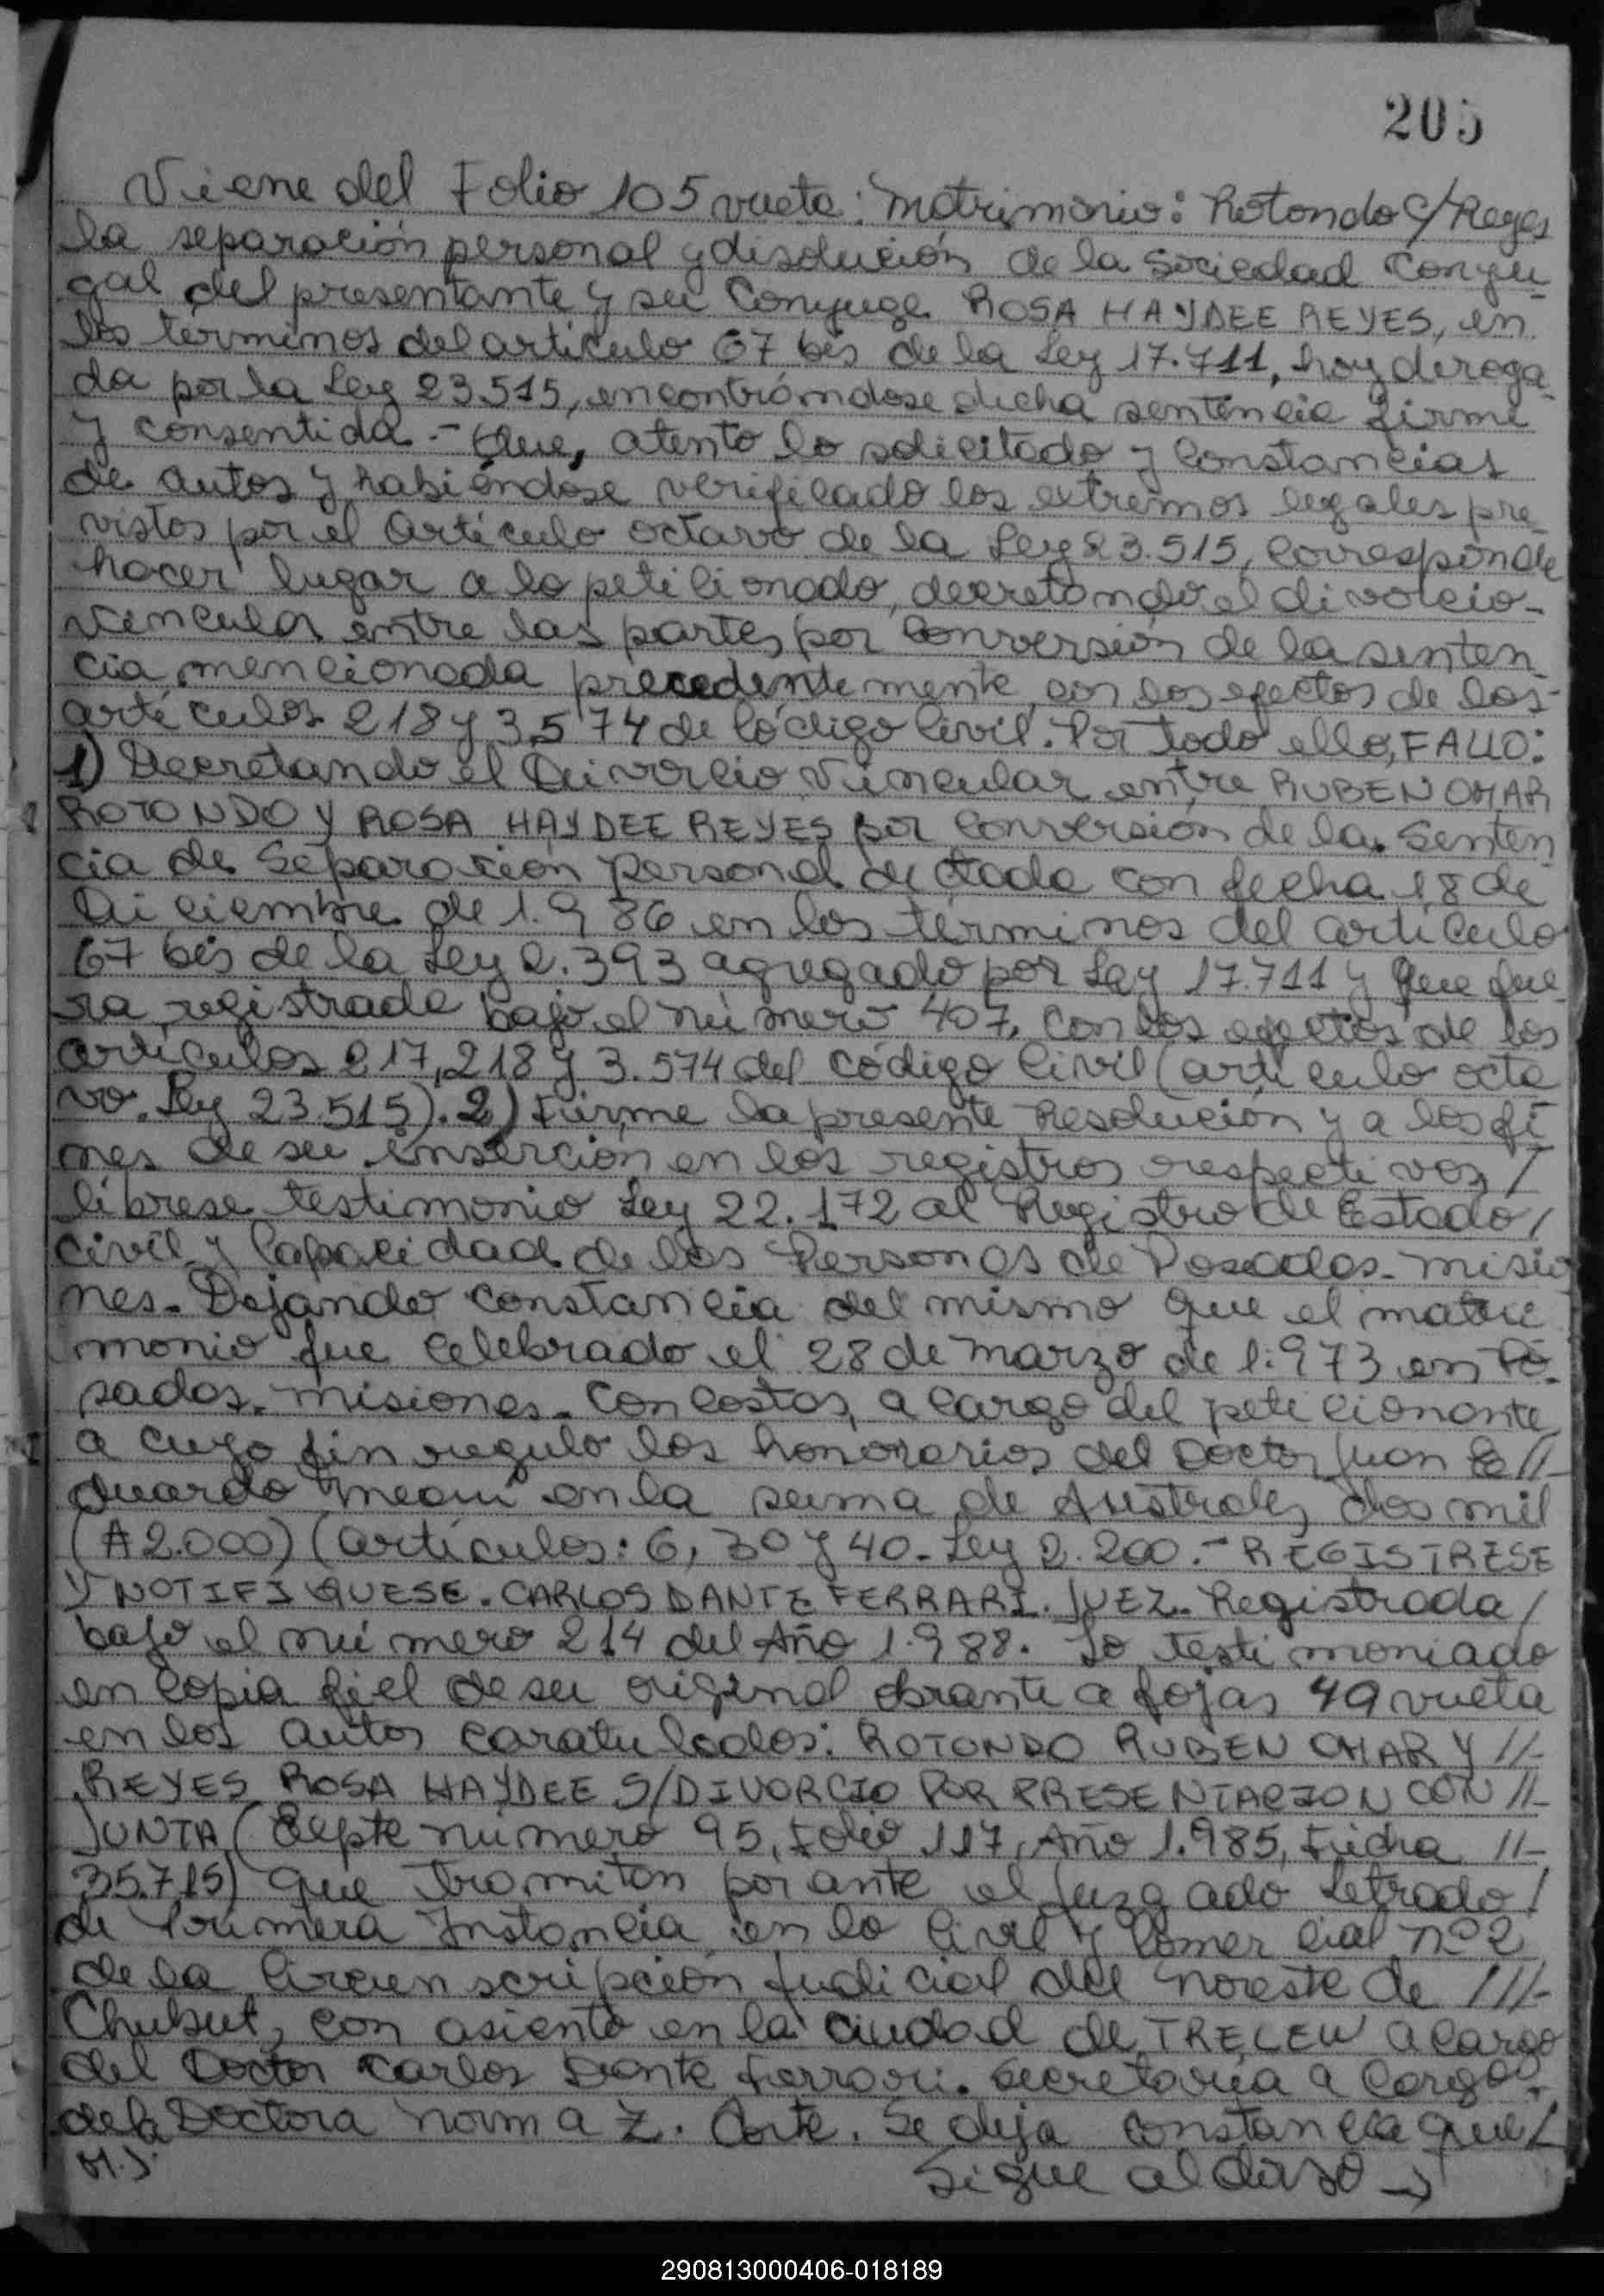 205
Viene del Folio 105 vuelta: Matrimonio: Rotondo c/ Reyes
la separación personal y disolución de la Sociedad Conyu-
gal del presentante y su Conyuge ROSA HAYDEE REYES, en
los términos del artículo 67 bis de la Ley 17.711, hoy deroga
da por la Ley 23.515, encontrándose dicha sentencia firme
y consentida.- Que, atento lo solicitado y Constancias
de autos y habiéndose verificado los extremos legales pre-
vistos por el Artículo octavo de la Ley 23.515, Corresponde
hacer lugar a lo peticionado, decretando el divorcio-
vincular entre las partes por Conversión de la senten
cia mencionada precedentemente con los efectos de los-
artículos 218 y 3.574 de Código Civil. Por todo ello, FALLO:
1) Decretando el Divorcio Vincular entre RUBEN OMAR
ROTONDO Y ROSA HAYDEE REYES por Conversión de la Senten
cia de Separacion Personal dictada con fecha 18 de
Diciembre de 1.986 en los términos del artículo
67 bis de la Ley 2.393 agregado por Ley 17.711 y que fue
ra registrada bajo el número 407, con los efectos de los
artículos 217, 218 y 3.574 del Código Civil (artículo octa
vo. Ley 23.515). 2) Firme la presente Resolución y a los fi
nes de su inserción en los registros respectivos /
líbrese testimonio Ley 22.172 al Registro de Estado /
Civil y Capacidad de las Personas de Posadas-Misio
nes- Dejando constancia del mismo que el matri
monio fue celebrado el 28 de Marzo de 1.973 en Po-
sadas- Misiones- Con costas, a cargo del peticionante
a cuyo fin regulo los honorarios del Doctor Juan E //-
duardo en la suma de Australes dos mil
(₳2.000) (artículos: 6, 30 y 40- Ley 2.200.- REGISTRESE
Y NOTIFIQUESE. CARLOS DANTE FERRARI. JUEZ. Registrada /
bajo el número 214 del Año 1.988. Lo testimoniado
en Copia fiel de su original obrante a fojas 49 vuelta
en los autos caratulados: ROTONDO RUBEN OMAR Y //-
REYES ROSA HAYDEE S/DIVORCIO POR PRESENTACION CON //-
JUNTA (Expte número 95, Folio 117, Año 1.985, Ficha //-
35.715) que tramitan por ante el Juzgado Letrado /
de Primera Instancia en lo Civil y Comercial nº 2
de la Circunscripción Judicial del Noreste de ///-
Chubut, con asiento en la ciudad de TRELEW a cargo
del Doctor Carlos Dante Ferrari. Secretaría a Cargo-
de la Doctora Norma Z. Corte. Se deja constancia que /
M.J.
Sigue al dorso →
290813000406-018189